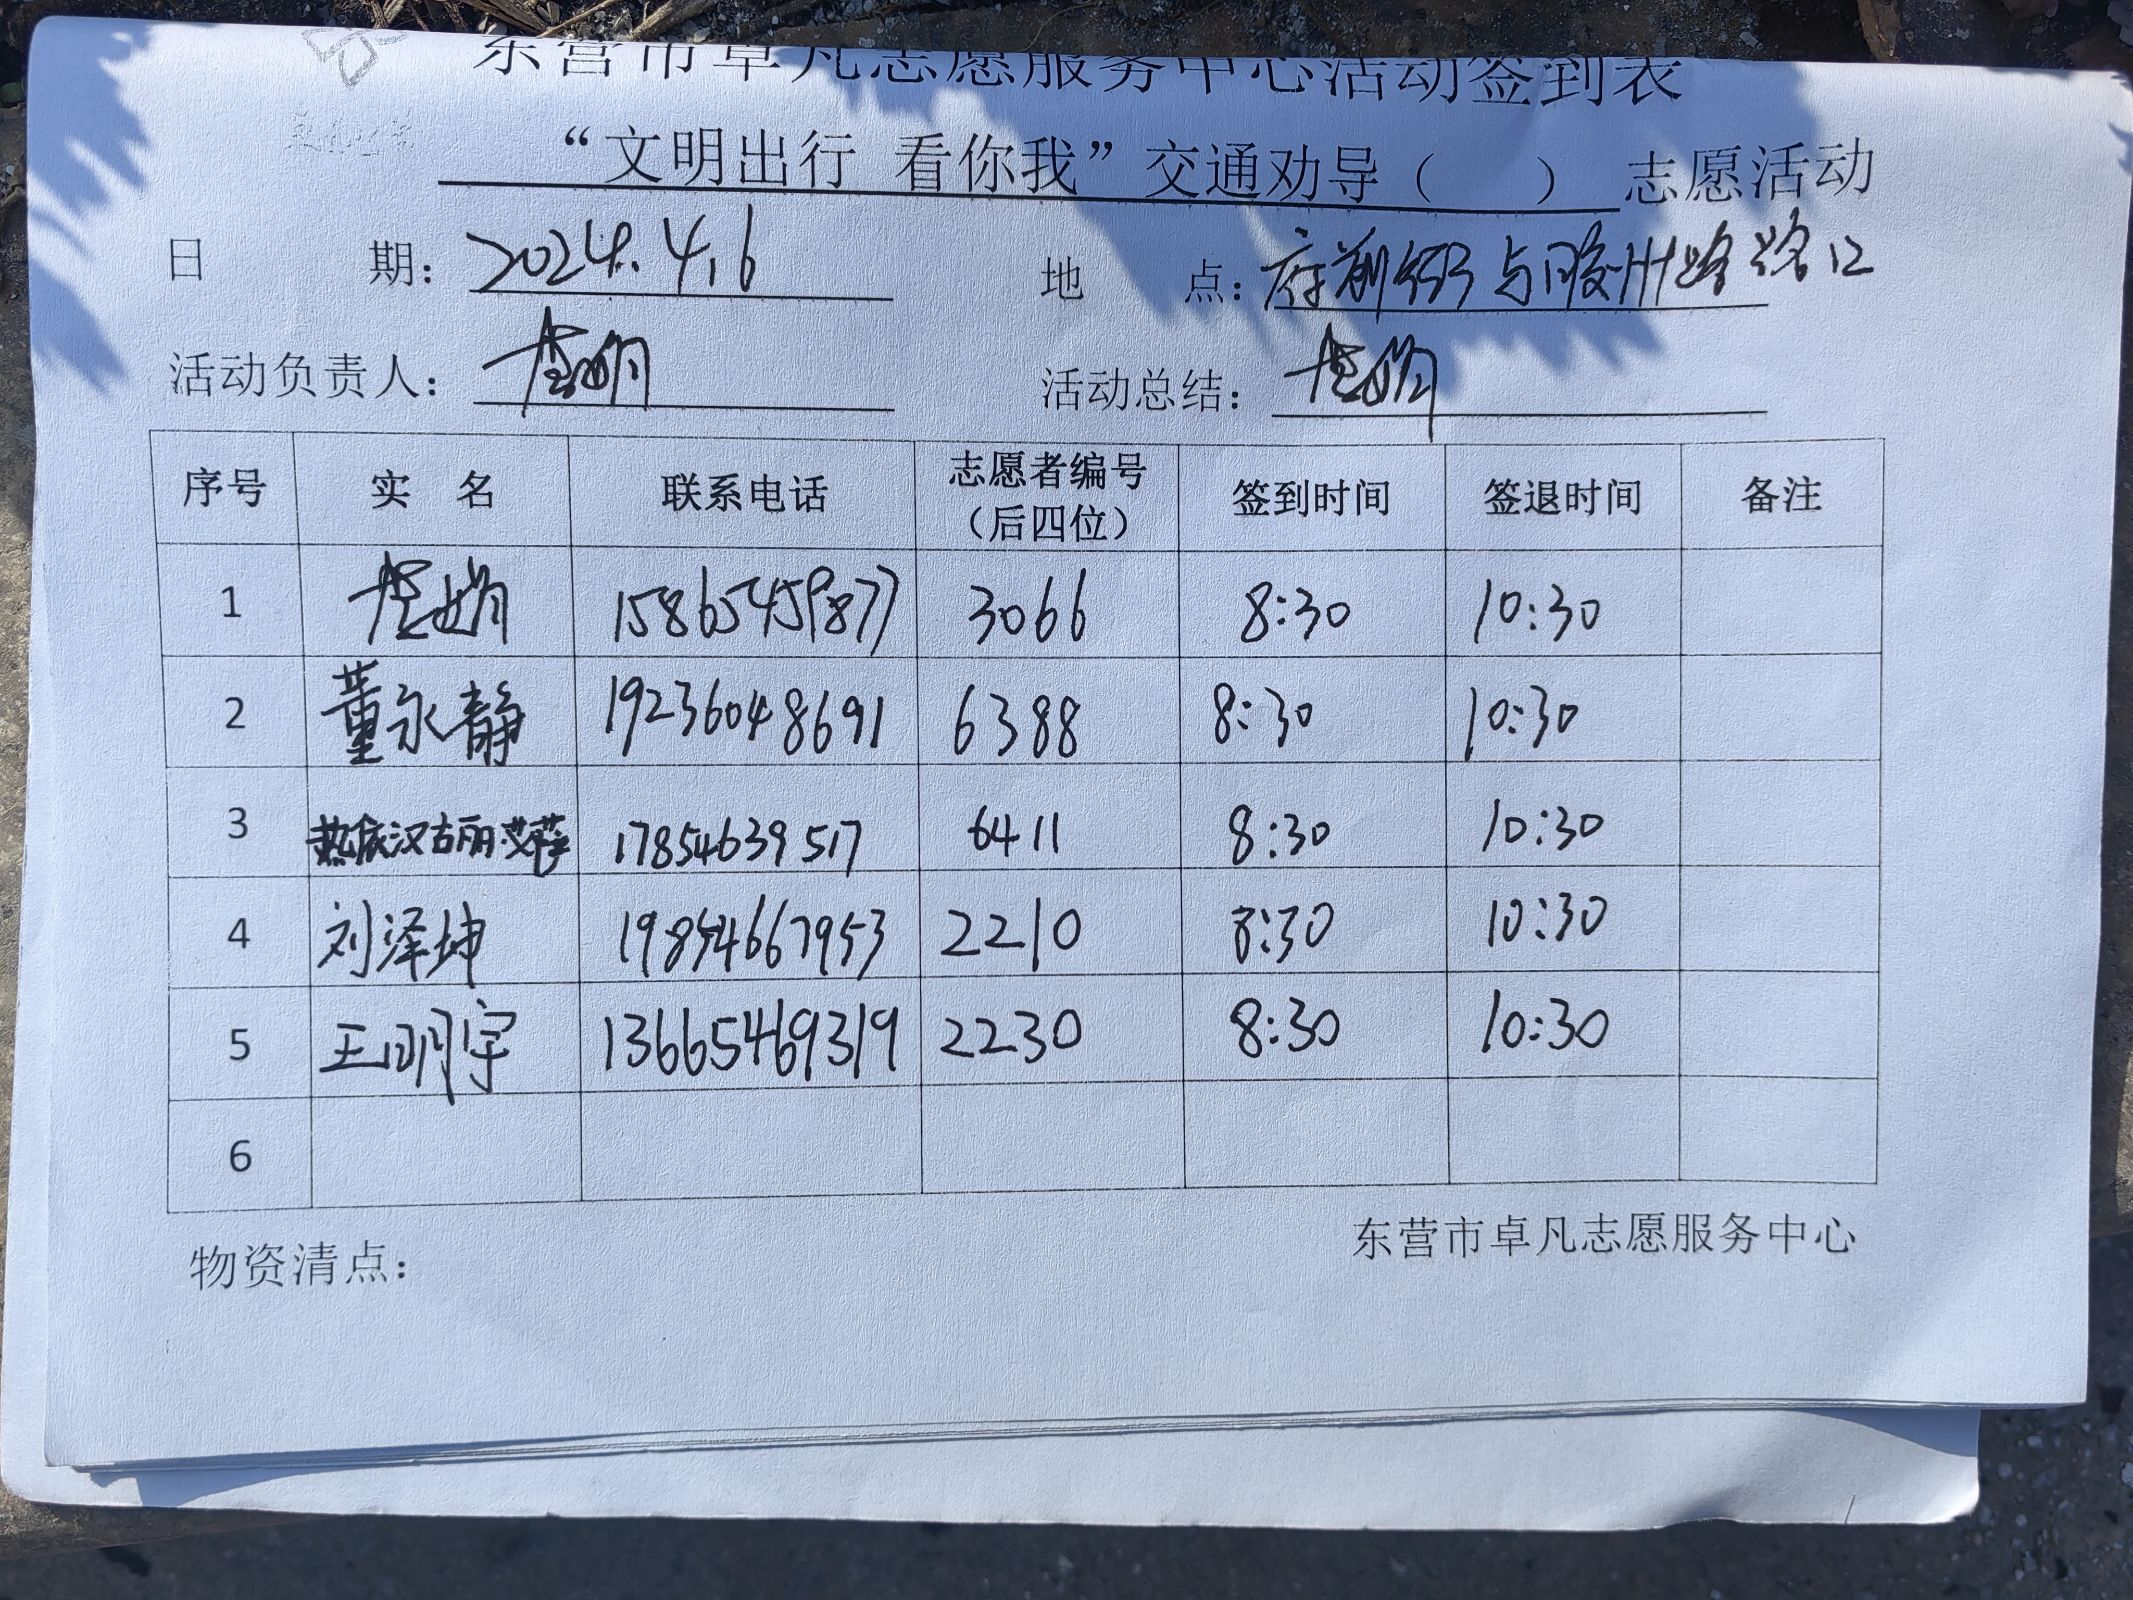 东营市卓凡志愿服务中心活动签到表
“文明出行 看你我”交通劝导（ ）志愿活动
日 期：2024.4.6 地 点：府前街与胶州路路口
活动负责人： 活动总结：
序号 实 名 联系电话 志愿者编号（后四位） 签到时间 签退时间 备注
1 15865459877 3066 8:30 10:30
2 董永静 19236048691 6388 8:30 10:30
3 汉古丽· 17854639517 6411 8:30 10:30
4 刘泽坤 19854667953 2210 8:30 10:30
5 王明宇 13665469319 2230 8:30 10:30
6
物资清点： 东营市卓凡志愿服务中心